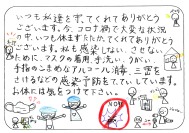 いつも私達を守ってくれてありがとう
ございます。今、コロナ禍で大変な状況の
中で、いつも休まずたたかってくれてありがとう
ございます。私も感染しない、させない
ために、マスクの着用、手洗い、うがい、
手指のこまめなアルコール消毒、三密を
さけるなどの感染予防をしています。
お体には気をつけて下さい。
NO!!